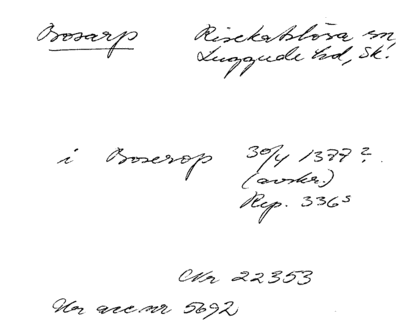 Bosarp Risekatslösa sn
Luggude hd, Sk.
i Boserop 30/4 1377?
(avskr.)
Rep. 336 s
Nr 22353
Ur acc.nr 5692